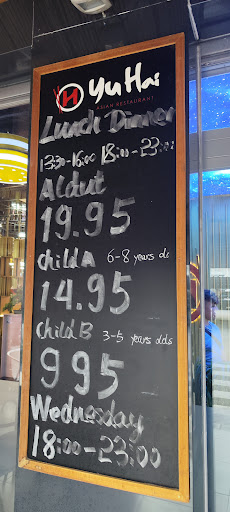 Yu Hai
ASIAN RESTAURANT
Lunch Dinner
13:30-16:00 18:00-23:00
Aldut
19.95
child A 6-8 years olds
14.95
child B 3-5 years olds
9 95
Wednesday
18:00-23:00